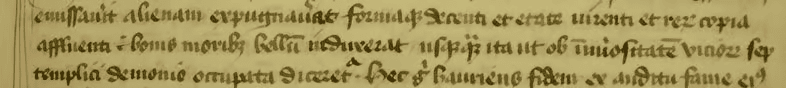 emissarit alienam expugnaverat formaq; decenti et etate virenti et rex copia
affluenti ē bonis morib; bellū induxerat usq;q; ita ut ob īmūositatē vicioꝝ sep
templici demonio occupata diceret^r. Hec g̊ hauriens fidem ex auditu fame eiꝰ